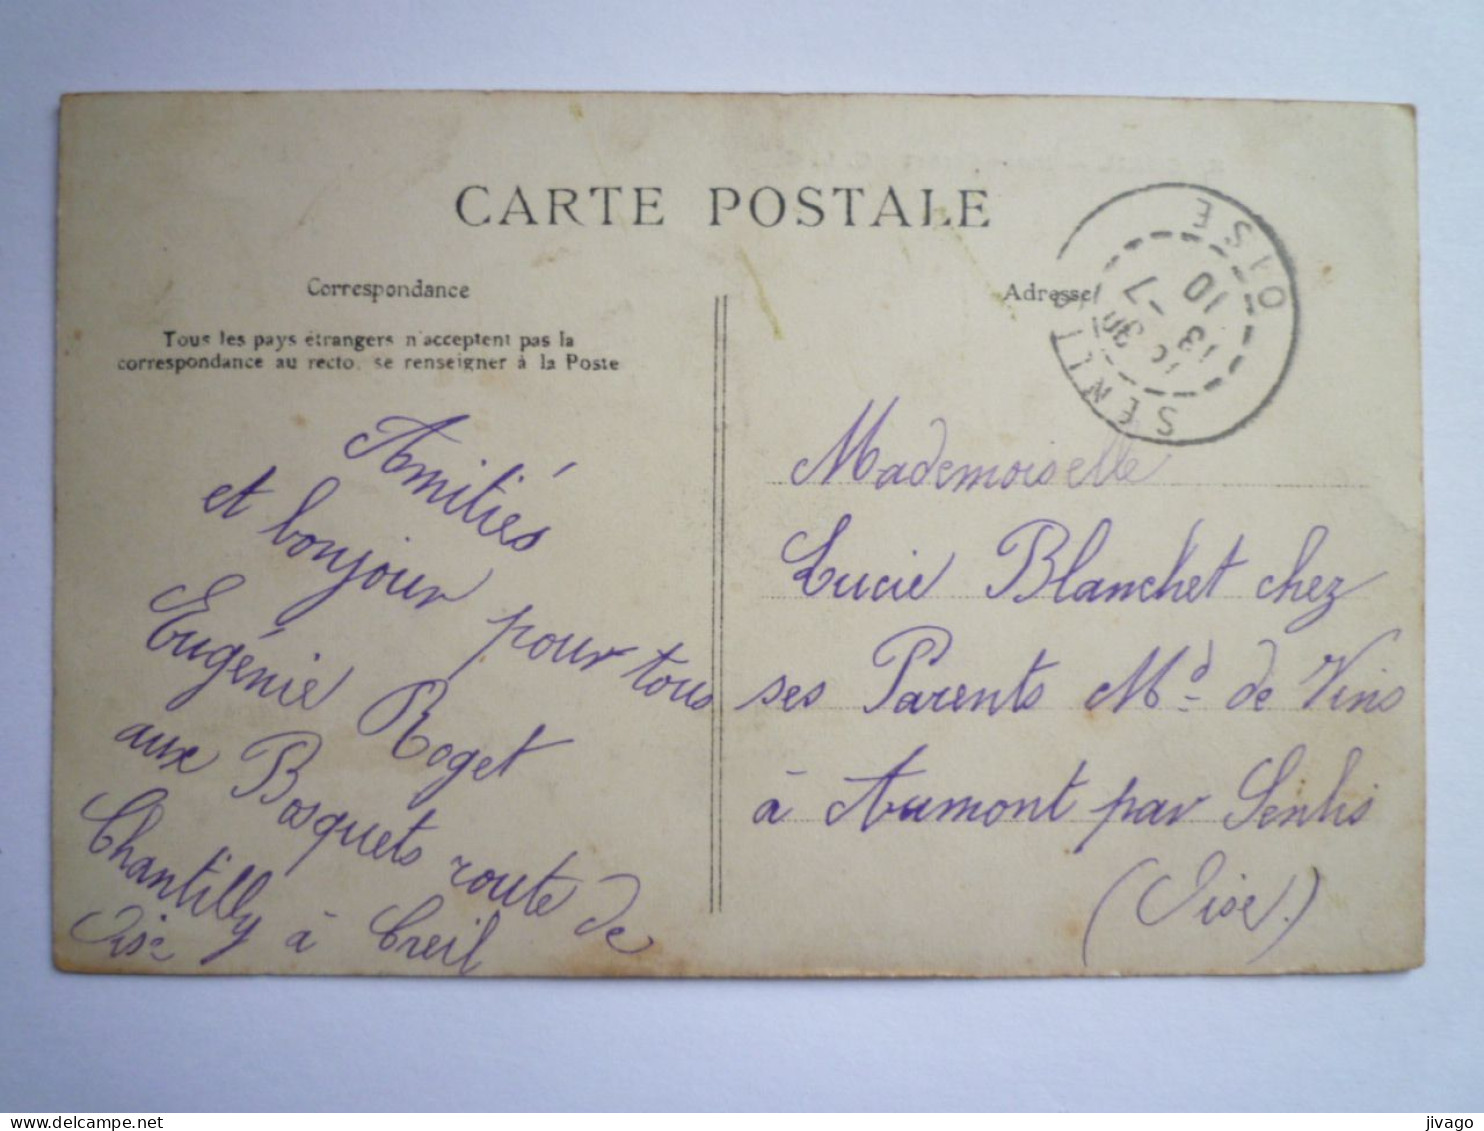 CARTE POSTALE
Correspondance
Tous les pays étrangers n'acceptent pas la
correspondance au recto, se renseigner à la Poste
Amitiés
et bonjour pour tous
Eugénie Roget
aux Bosquets route de
Chantilly à Creil
Oise
Adresse
SENLIS OISE
13 -7
10
Mademoiselle
Lucie Blanchet chez
ses Parents Md de Vins
à Aumont par Senlis
(Oise.)
jivago